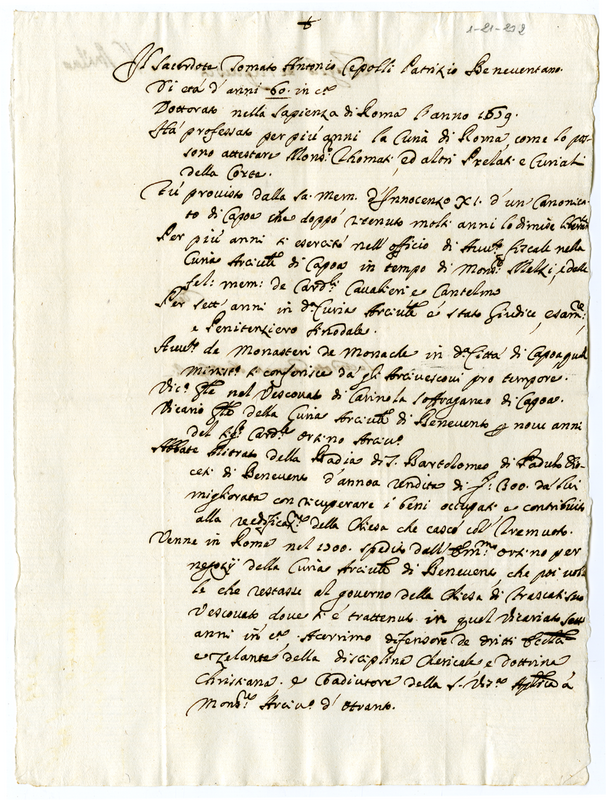 1-21-212
Il Sacerdote Tomaso Antonio Cepolli Patrizio Beneventano.
Di età d'anni 60. in c.a
Dottorato nella Sapienza di Roma l'anno 1659.
Hà professato per più anni la Curia di Roma, come lo pos-
sono attestare Mons.r Thomati, ed altri Prelati e Curiali
della Corte.
Fù provisto dalla sa. mem. d'Innocenzo XI. d'un Canonica-
to di Capoa che doppò ritenuto molti anni lo dimise
Per più anni si esercitò nell'officio di Avv.to fiscale nella
Curia Arciv.le di Capoa in tempo di Mons.r Melzi, e delle
fel: mem: de Card.li Cavalieri e Cantelmo
Per sett'anni in d.a Curia Arciv.le è stato Giudice, esam.re
e Penitenziero Sinodale.
Avv.to de Monasteri de Monache in d.a Città di Capoa, qual
minist.o si conferisce dà gli Arcivescovi pro tempore.
Vic.o G.le nel Vescovato di Carinola soffraganeo di Capoa.
Vicario G.le della Curia Arciv.le di Benevento p nove anni
del Card.le Orsino Arciv.o
Abbate Mitrato della Badia di S. Bartolomeo di Paduli Dio-
cesi di Benevento d'annoa rendita di 1300. da lui
migliorata con ricuperare i beni occupati e contribuito
alla reedificaz.ne della Chiesa che cascò col Tremuoto.
Venne in Roma nel 1700. spedito dall' Em.mo Orsino per
negozij della Curia Arciv.le di Benevento, che poi vol-
le che restasse al governo della Chiesa di Frascati suo
Vescovato dove si è trattenuto in quel Vicariato sett'
anni in c.a Acerrimo defensore de dritti
e Zelante della disciplina Chericale e Dottrina
Christiana. e Coadiutore della S. à
Mons.r Arciv.o d'Otranto.